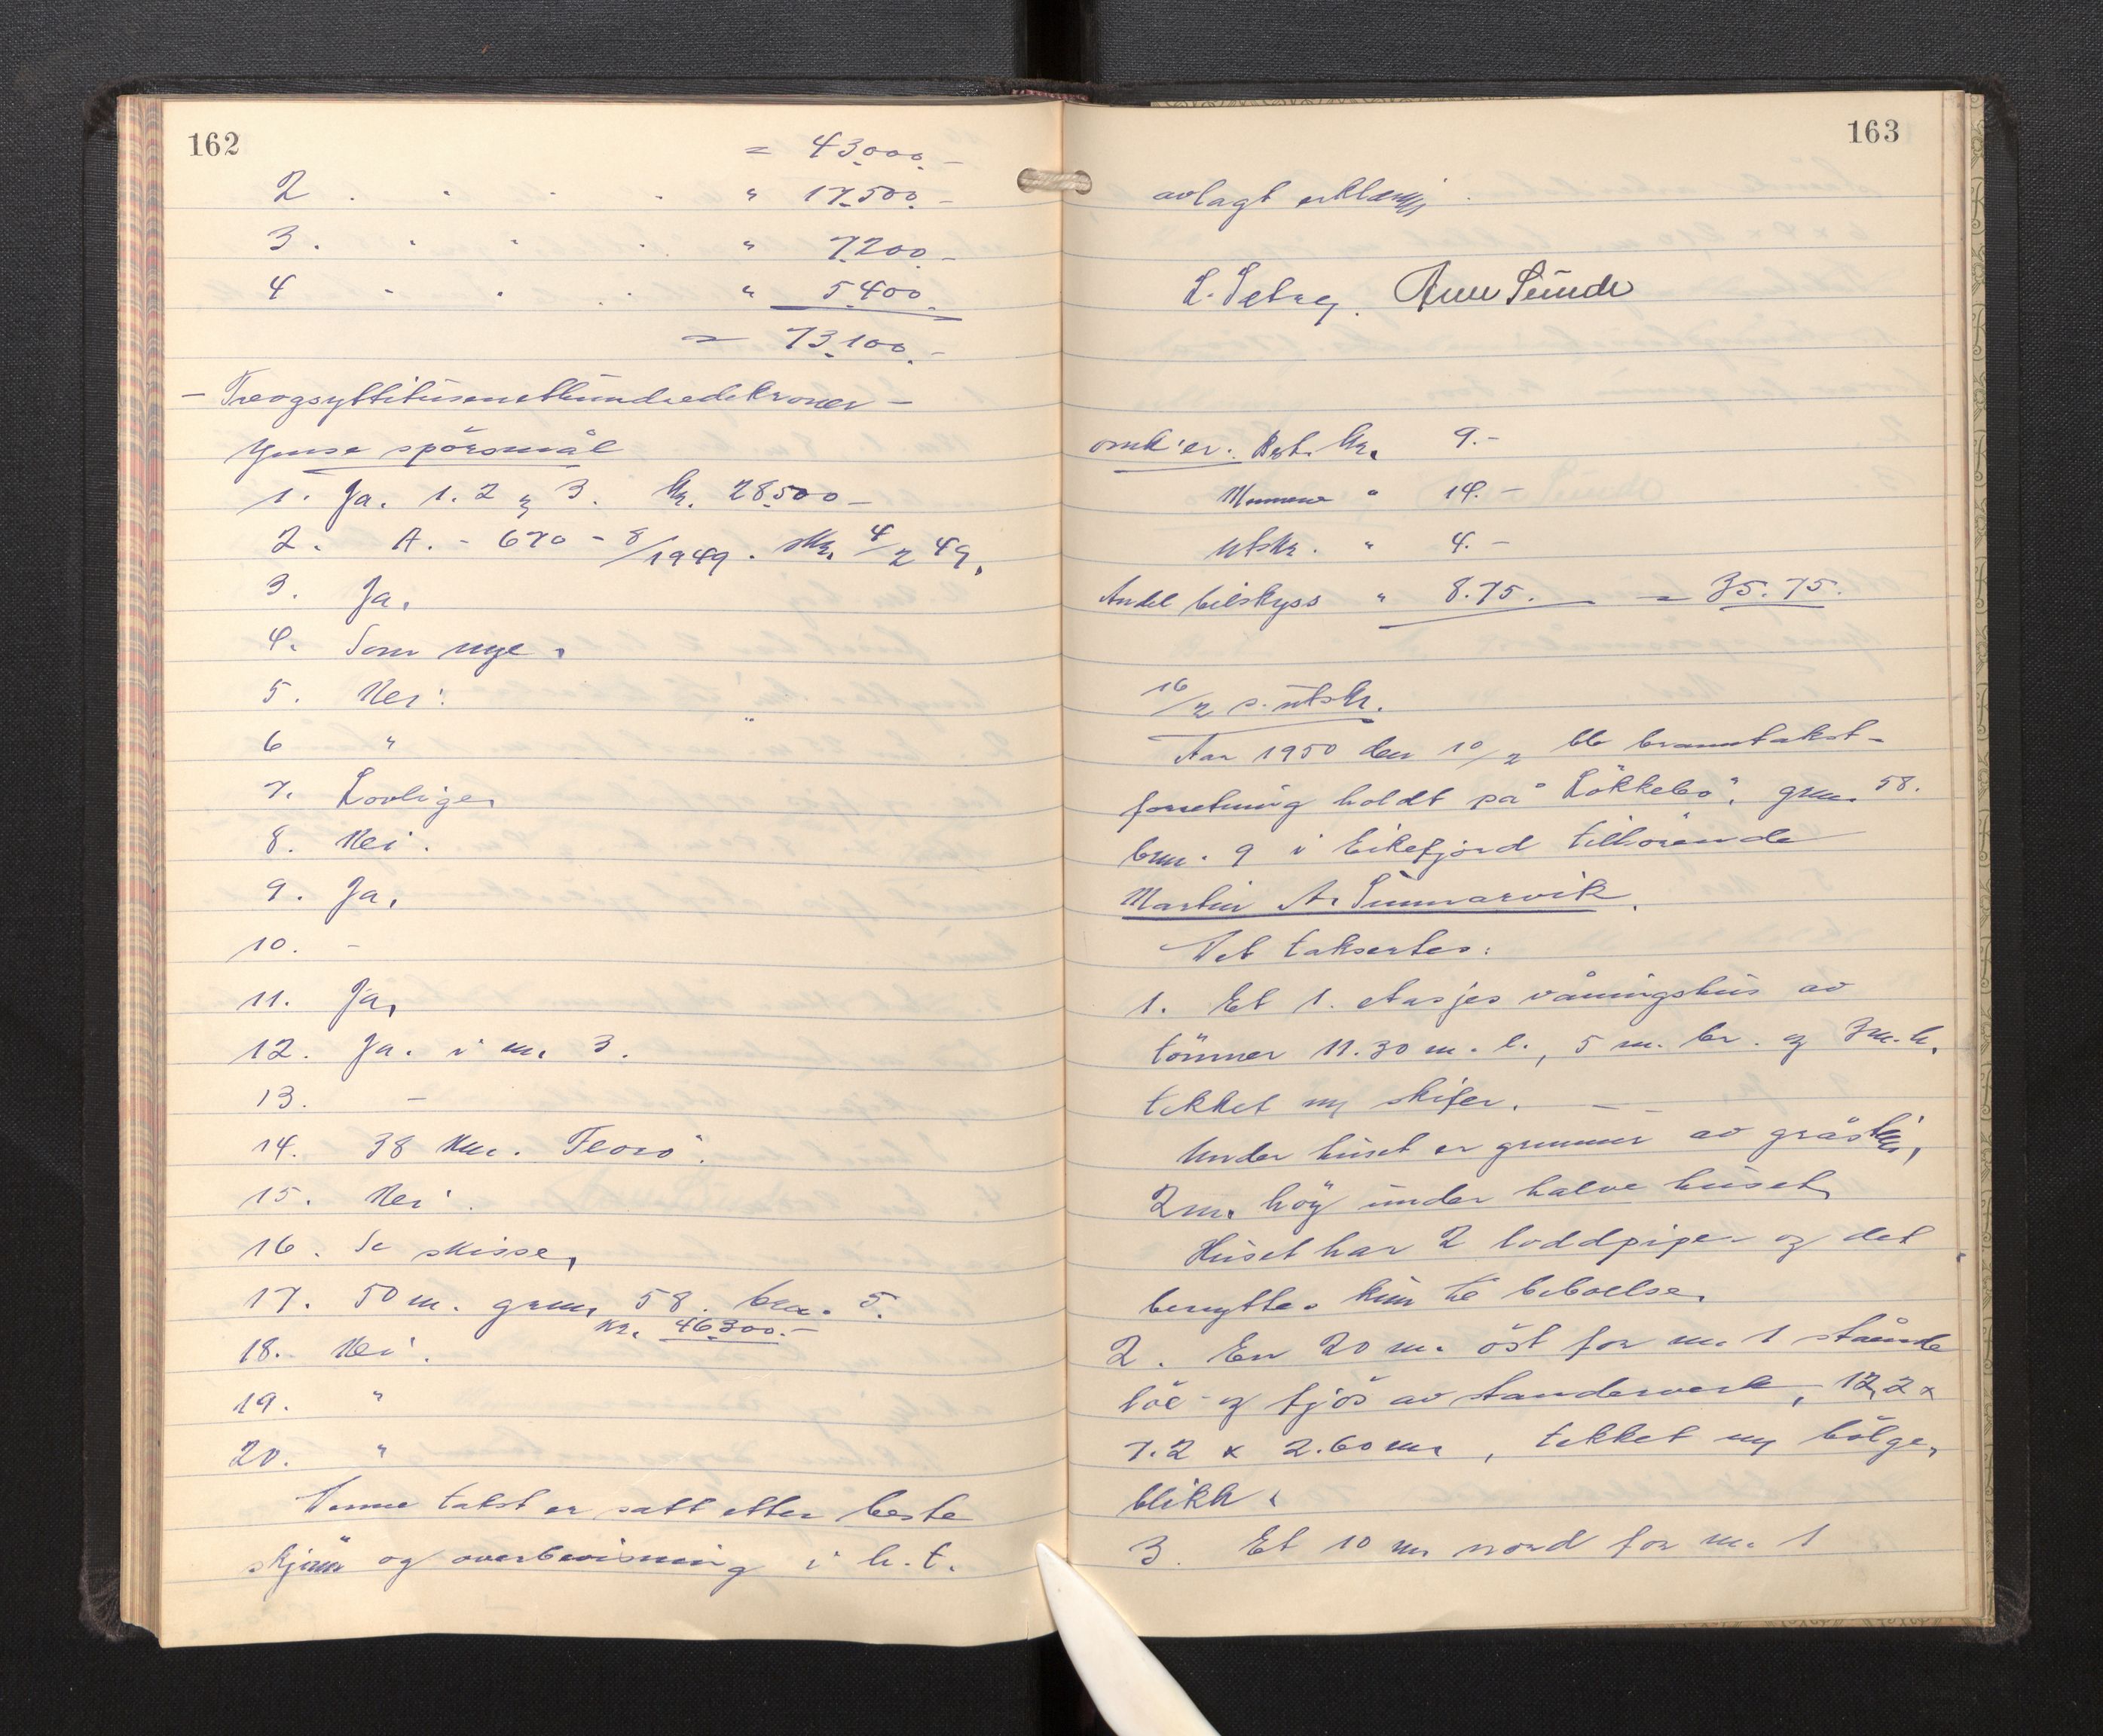 162
= 43.000.-
2 . " . . " 17.500.-
3. " " . " 7.200.-
4 " . . " 5.400.
= 73.100.-
- Treogsyttitusenetthundredekroner -
Ymse spörsmål
1. Ja. 1. 2 og 3. kr. 28.500-
2. A. - 670 - 8/1949. skr. 4/2 49.
3. Ja.
4. Som nye.
5. Nei.
6 "
7. Lovlige.
8. Nei.
9. Ja.
10. -
11. Ja.
12. Ja. i m. 3.
13. -
14. 38 km. Florö.
15. Nei.
16. Se skisse.
17. 50 m. grnr. 58. bnr. 5.
kr. 46.300.-
18. Nei.
19. "
20. "
Denne takst er satt etter beste
skjönn og overbevisning i h. t.
163
avlagt erklæring.
L. Sebrey. Arne Sunde
omk'er. Rekt. kr. 9.-
" 14.-
Utskr. " 4.-
Andel bilskyss " 8.75. = 35.75.
16/2 s. utskr.
Aar 1950 den 10/2 ble branntakst-
forretning holdt på "Lökkebö". grnr. 58.
bnr. 9 i Eikefjord tilhörende
Martin A. Sunnarvik.
Det taksertes:
1. Et 1. etasjes våningshus av
tömmer 11.30 m. l., 5 m. br. og 3 m. h.
tekket m skifer. - -
Under huset er grunnmur av gråstein,
2 m. höy under halve huset.
Huset har 2 loddpiper og det
benyttes kun til beboelse.
2. En 20 m. öst for m. 1 stående
löe- og fjös av standerverk, 12,2 x
7.2 x 2.60 m. , tekket m bölge,
blikk.
3. Et 10 m nord for m. 1